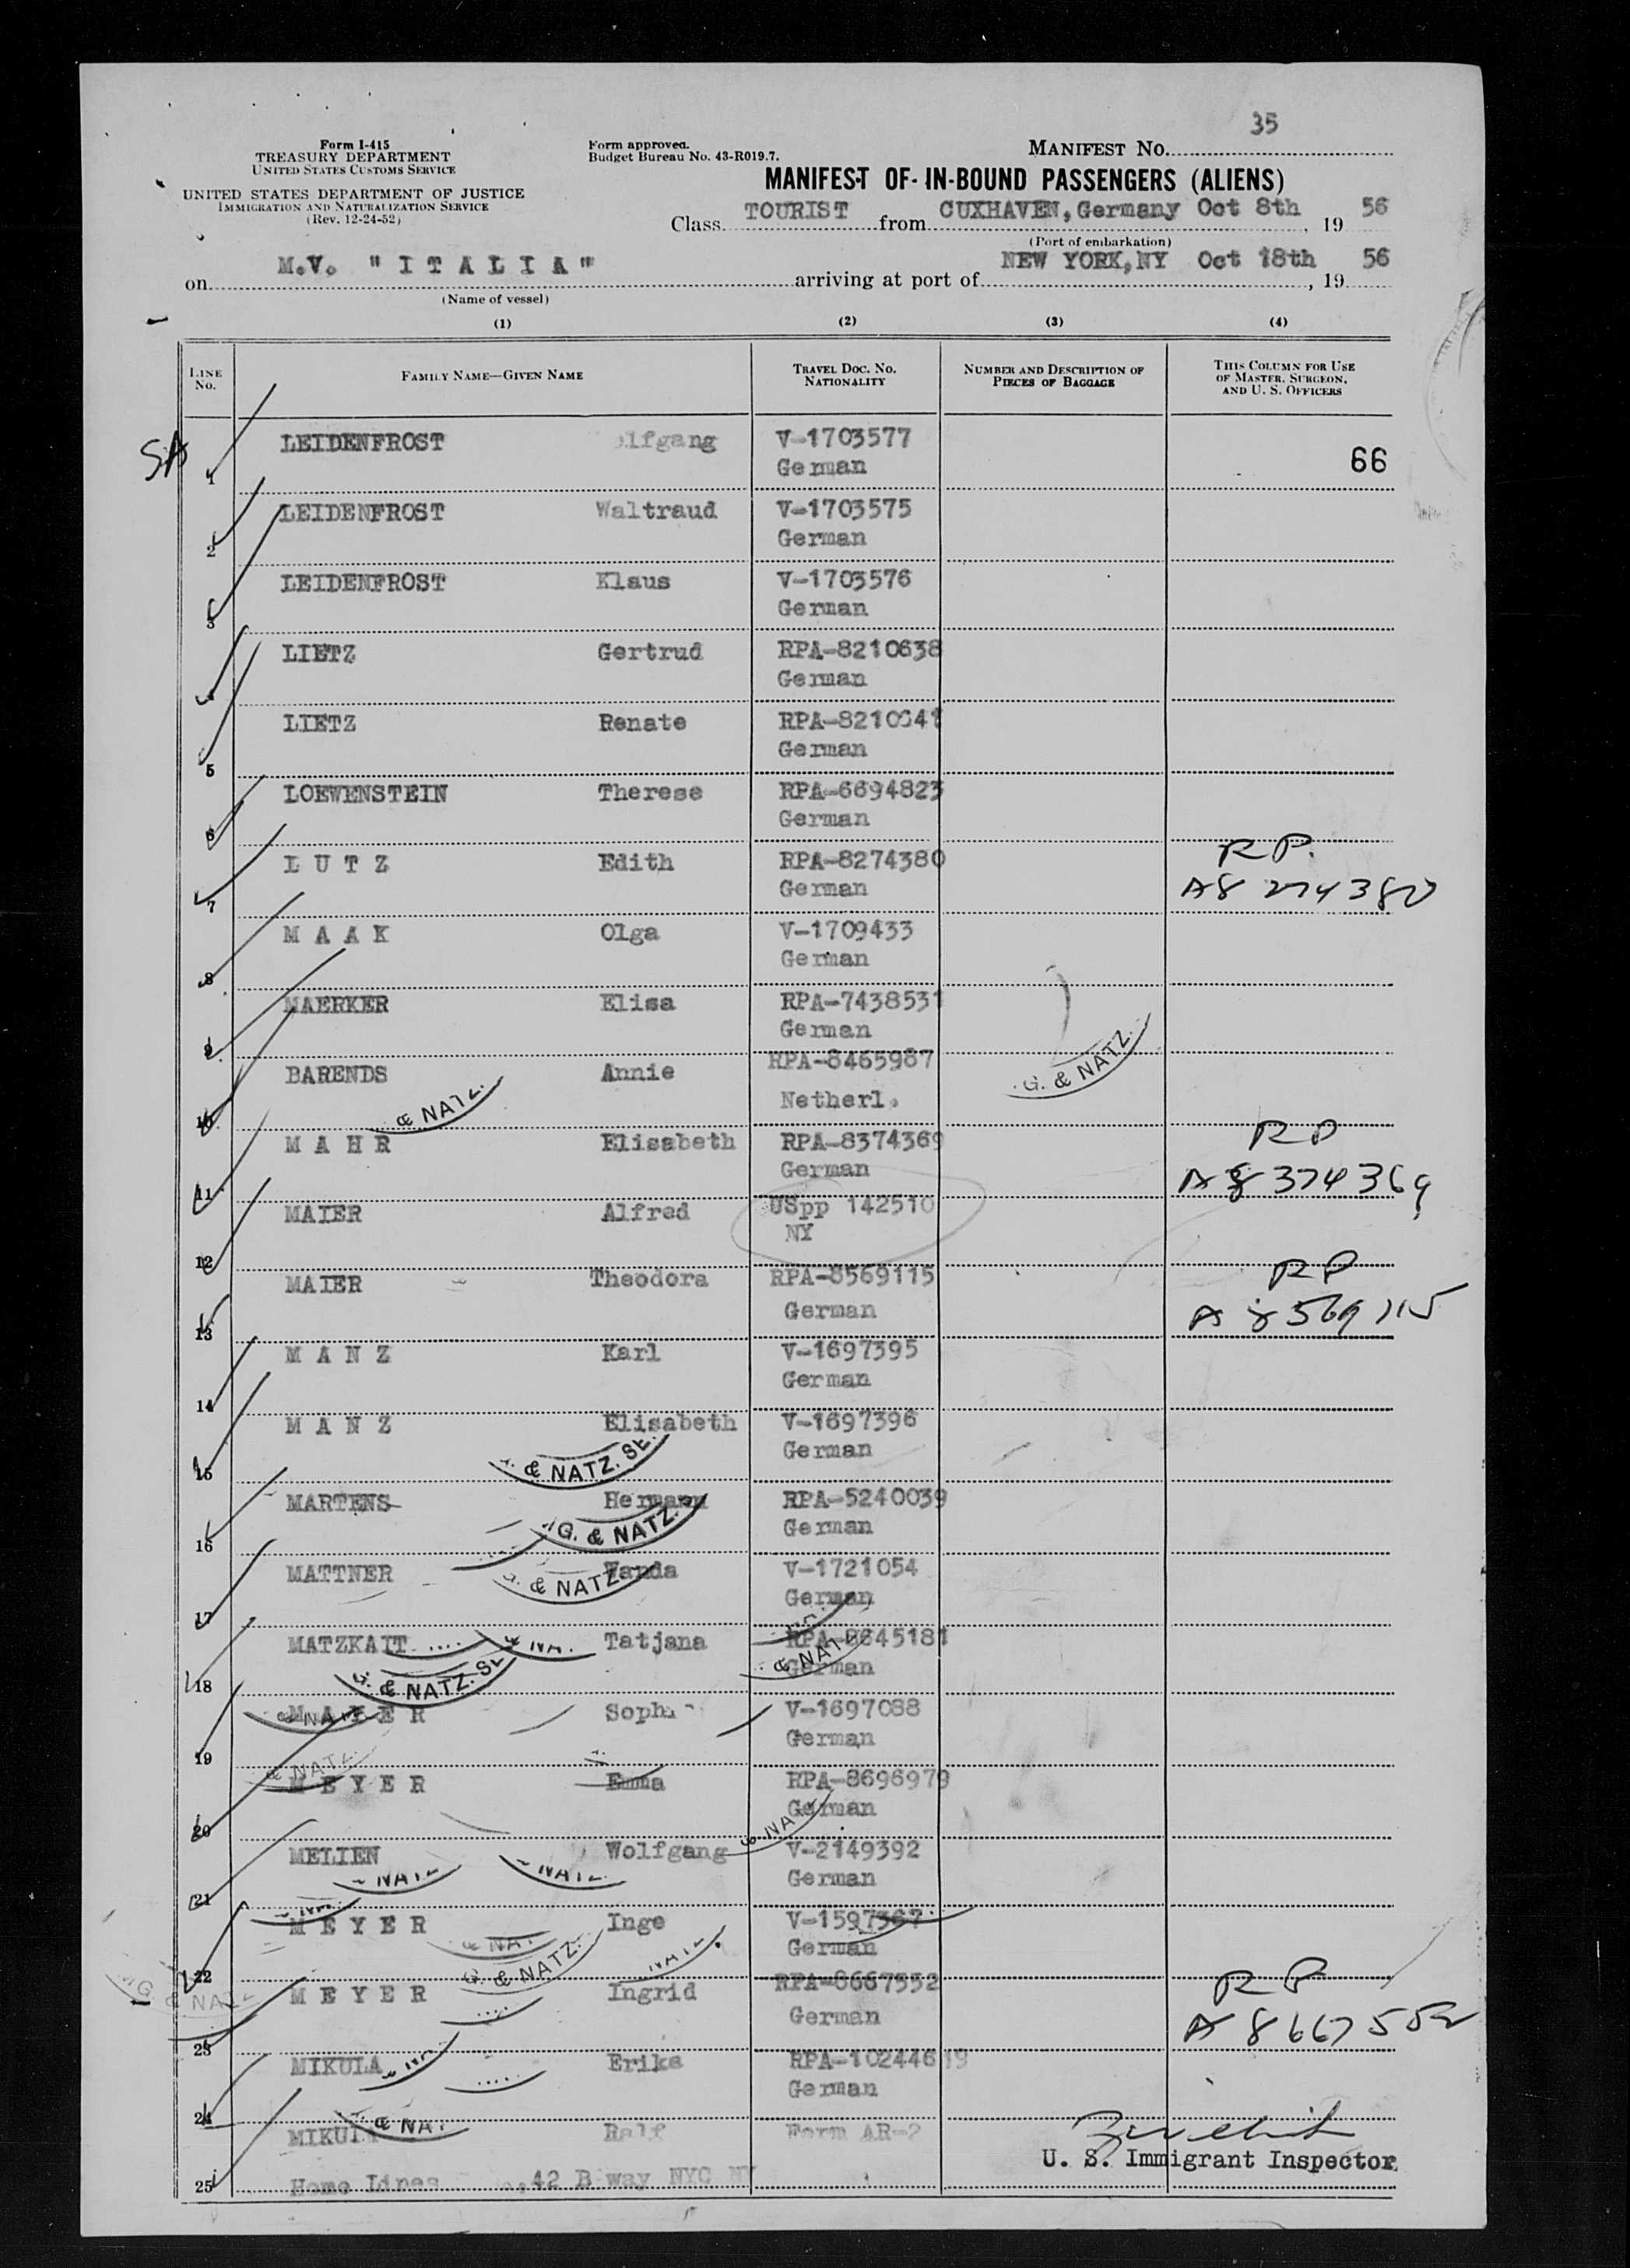 35
Form I-415
TREASURY DEPARTMENT
UNITED STATES CUSTOMS SERVICE
UNITED STATES DEPARTMENT OF JUSTICE
IMMIGRATION AND NATURALIZATION SERVICE
(Rev. 12-24-52)
Form approved.
Budget Bureau No. 43-R019.7.
MANIFEST NO.
MANIFEST OF IN-BOUND PASSENGERS (ALIENS)
Class TOURIST from CUXHAVEN, Germany Oct 8th, 19 56
(Port of embarkation)
on M.V. "I T A L I A" arriving at port of NEW YORK, NY Oct 18th, 19 56
(Name of vessel)
(1) (2) (3) (4)
LINE No. FAMILY NAME—GIVEN NAME TRAVEL DOC. NO. NATIONALITY NUMBER AND DESCRIPTION OF PIECES OF BAGGAGE THIS COLUMN FOR USE OF MASTER, SURGEON, AND U. S. OFFICERS
SA
1 LEIDENFROST V-1703577 66
German
2 LEIDENFROST Waltraud V-1703575
German
3 LEIDENFROST Klaus V-1703576
German
4 LIETZ Gertrud RPA-8210638
German
5 LIETZ Renate
German
6 LOEWENSTEIN Therese RPA-6694823
German
7 L U T Z Edith RPA-8274380 RP.
German A8 274380
8 M A A K Olga V-1709433
German
9 MAERKER Elisa RPA-7438531
German
10 BARENDS Annie RPA-8465987
Netherl.
& NATZ.
G. & NATZ.
11 M A H R Elisabeth RPA-8374369 RP
German A8 374369
12 MAIER Alfred USpp 142510
NY
13 MAIER Theodora RPA-8569115 RP
German A8569115
14 M A N Z Karl V-1697395
German
15 M A N Z Elisabeth V-1697396
German
& NATZ. SE
16 MARTENS Hermann RPA-5240039
German
G. & NATZ.
17 MATTNER Wanda V-1721054
German
& NATZ
18 MATZKAIT Tatjana RPA-8645181
German
& NATZ. SE
19 V-1697088
German
20 M E Y E R Emma RPA-8696979
German
21 MELIEN Wolfgang V-2149392
German
22 M E Y E R Inge V-1597367
German
G. & NATZ.
23 M E Y E R Ingrid RPA-8667552 RP
German A8667552
24 MIKULA Erika RPA-10244619
German
& NA
25 MIKULA Ralf Form AR-2
Home Lines 42 B way NYC NY
U. S. Immigrant Inspector